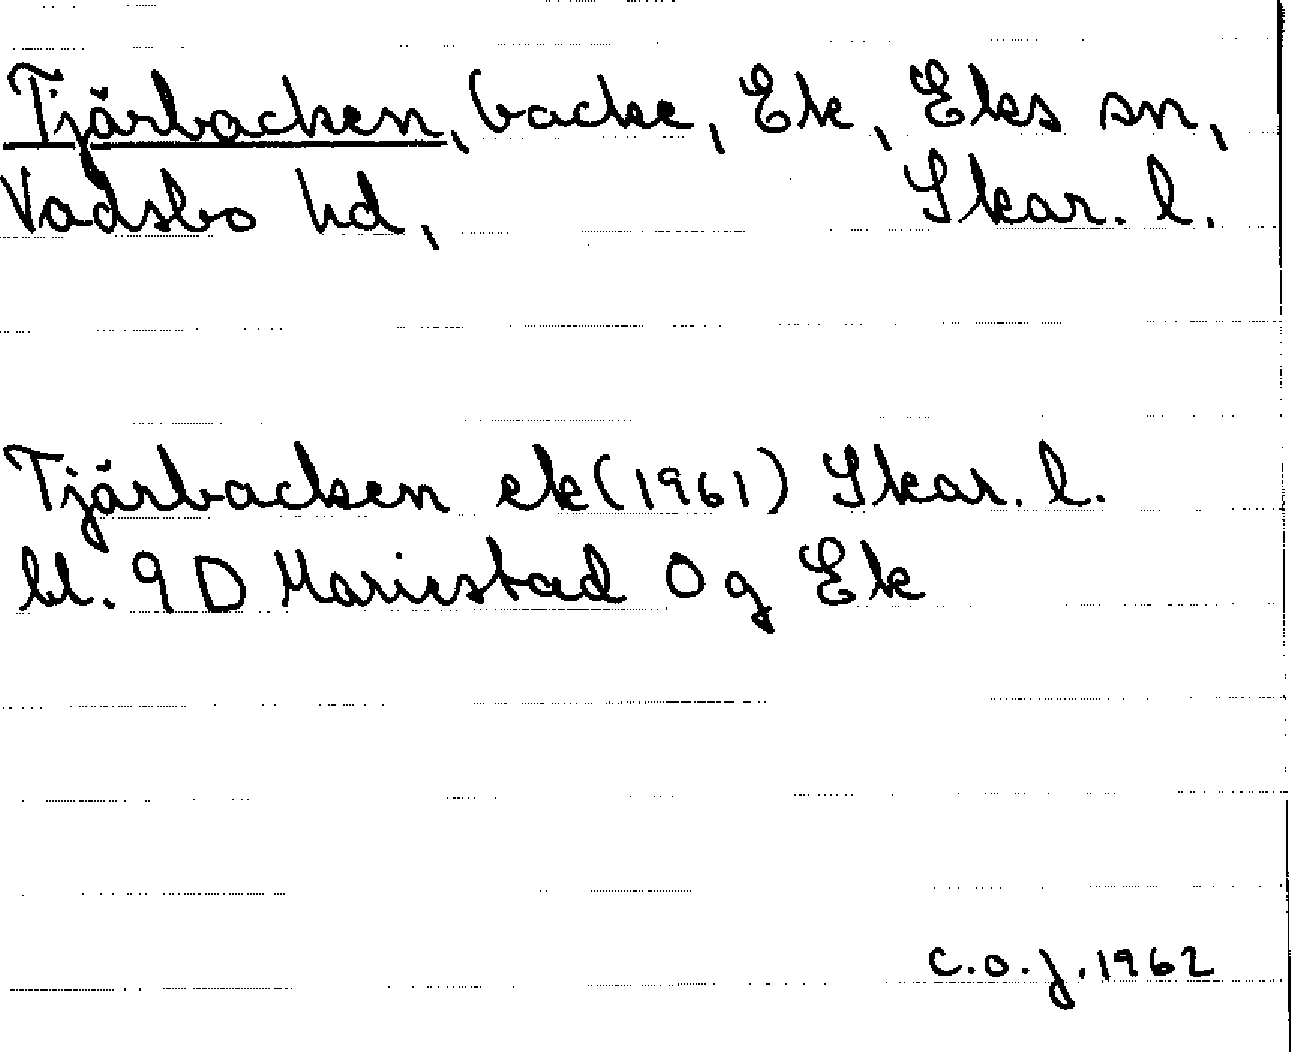 Tjärbacken, backe, Ek, Eks sn,
Vadsbo hd, Skar. l.
Tjärbacken ek (1961) Skar. l.
bl. 9 D Mariestad 0 g Ek
C.O.J. 1962